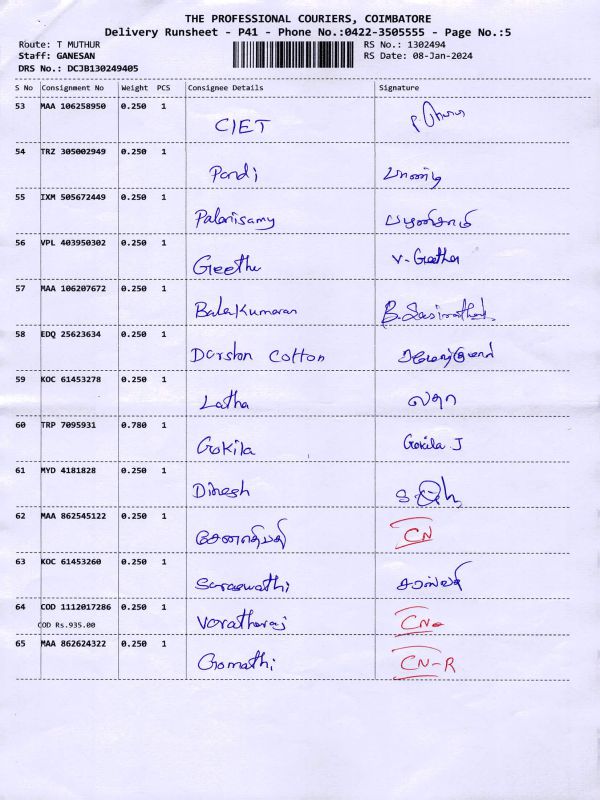 THE PROFESSIONAL COURIERS, COIMBATORE
Delivery Runsheet - P41 - Phone No.:0422-3505555 - Page No.:5
Route: T MUTHUR RS No.: 1302494
Staff: GANESAN RS Date: 08-Jan-2024
DRS No.: DCJB130249405
S No Consignment No Weight PCS Consignee Details Signature
53 MAA 106258950 0.250 1
CIET
54 TRZ 305002949 0.250 1
Pandi பாண்டி
55 IXM 505672449 0.250 1
Palanisamy பழனிசாமி
56 VPL 403950302 0.250 1
Geetha V. Geetha
57 MAA 106207672 0.250 1
Balakumaran
58 EDQ 25623634 0.250 1
Darshan Cotton
59 KOC 61453278 0.250 1
Latha லதா
60 TRP 7095931 0.780 1
Gokila Gokila J
61 MYD 4181828 0.250 1
Dinesh
62 MAA 862545122 0.250 1
CN
63 KOC 61453260 0.250 1
Saraswathi
64 COD 1112017286 0.250 1
COD Rs.935.00 Varatharaj
65 MAA 862624322 0.250 1
Gomathi CN-R